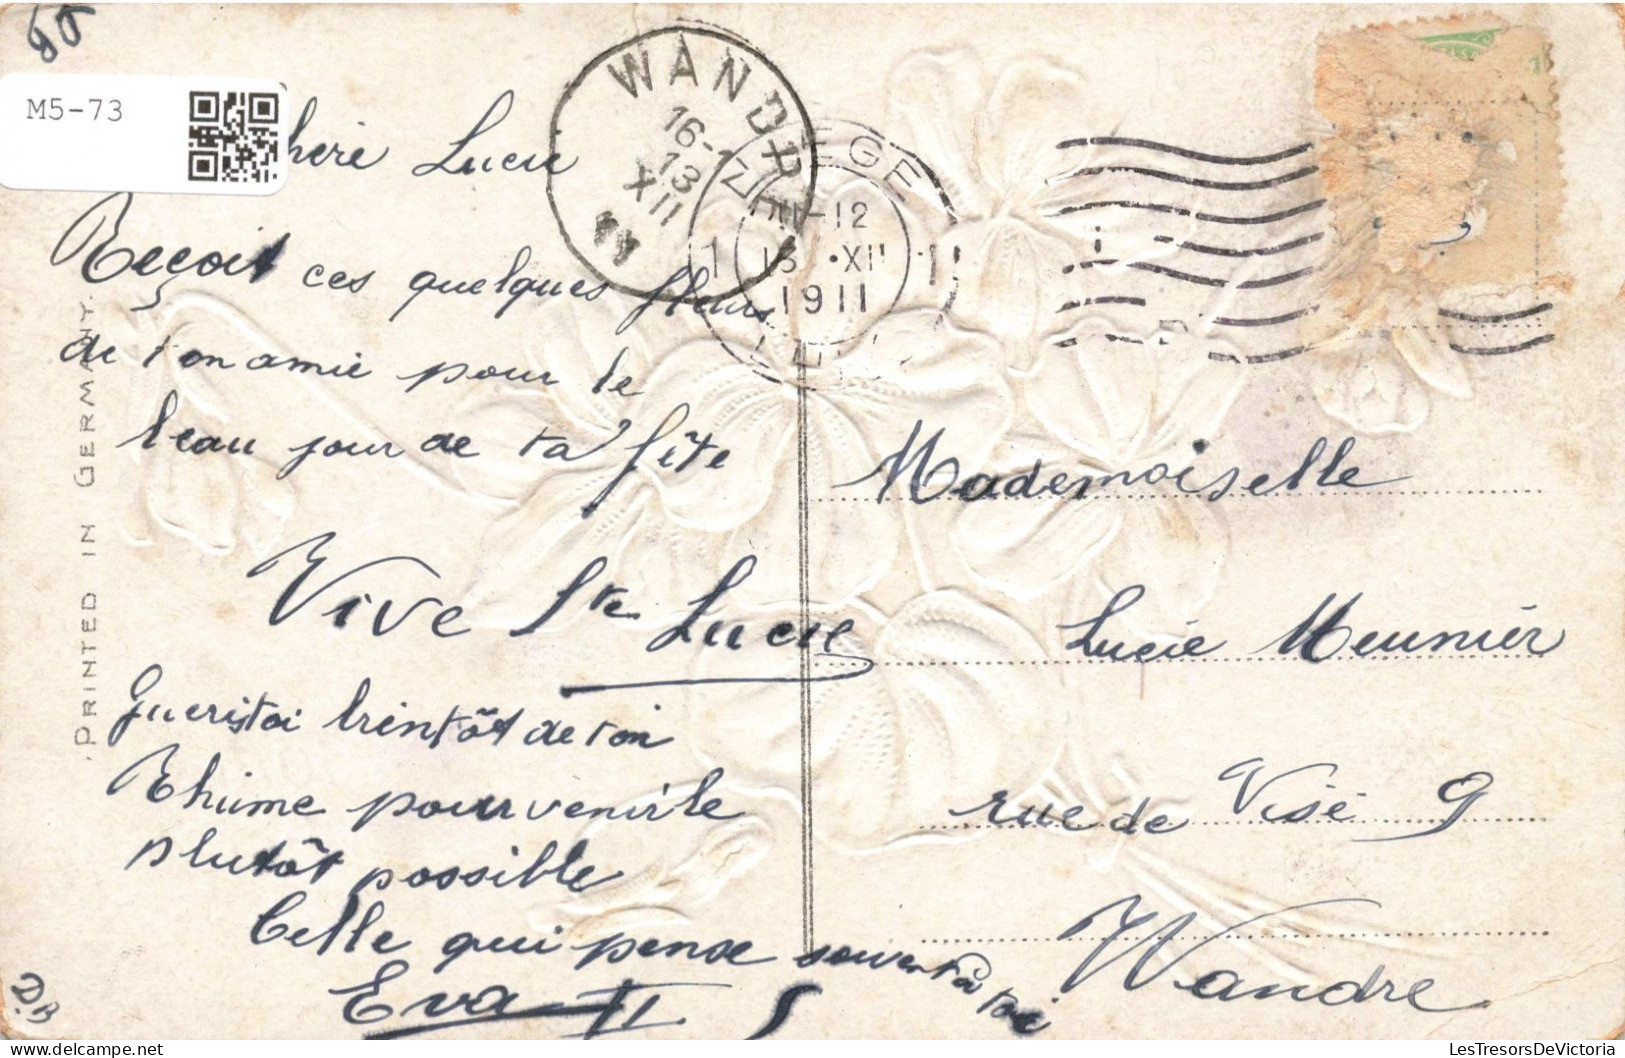 M5-73
WANDRE
16-17
13
XII
11
11-12
13 · XII
1911
Lucie
Reçoit ces quelques fleurs
de ton amie pour le
beau jour de ta fête
Vive Ste Lucie
Gueristoi bientôt de ton
Rhume pour venir le
plutôt possible
Celle qui pense souvent à toi
Eva II
PRINTED IN GERMANY.
D.B
Mademoiselle
Lucie Meunier
rue de Visé 9
Wandre
LesTresorsDeVictoria